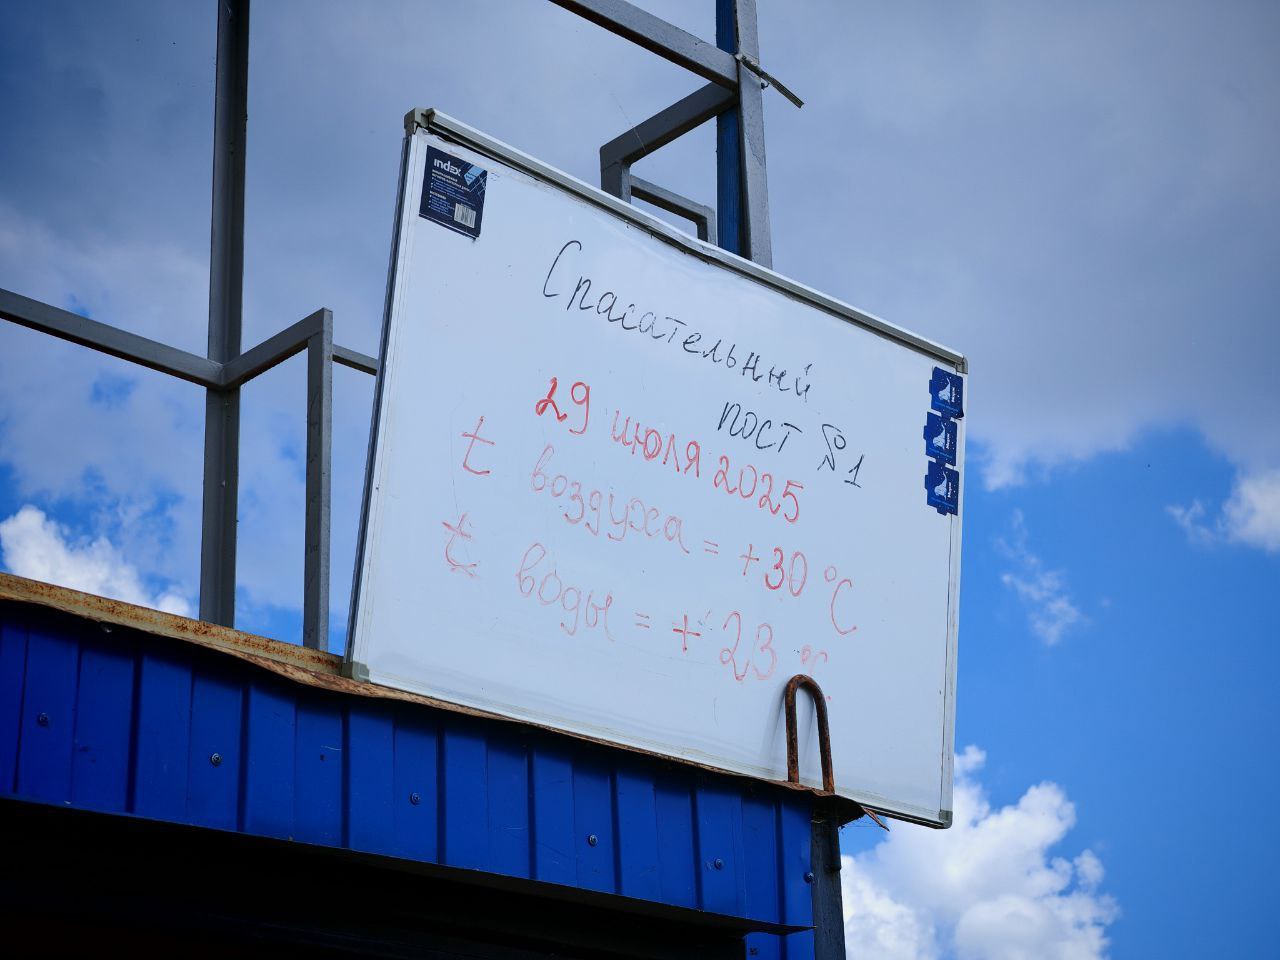 index
Спасательный
пост №1
29 июля 2025
t воздуха = +30 °C
t воды = + 23 °C